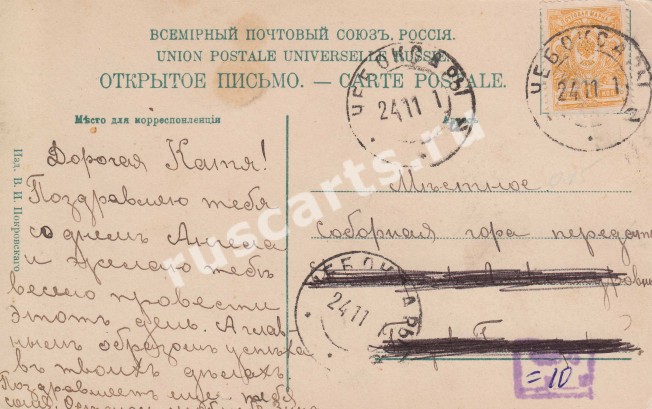 ВСЕМІРНЫЙ ПОЧТОВЫЙ СОЮЗЪ. РОССІЯ.
UNION POSTALE UNIVERSELLE. RUSSIE.
ОТКРЫТОЕ ПИСЬМО. — CARTE POSTALE.
Мѣсто для корреспонденціи
Изд. В. И. Покровскаго
Дорогая Катя!
Поздравляю тебя
со днемъ Ангела
и желаю тебѣ
весело провести
этотъ день. А глав
нымъ образомъ успѣха
въ твоихъ дѣлахъ
Поздравляетъ еще тебя
ЧЕБОКСАРЫ
24 11 1
ЧЕБОКСАРЫ
24 11 1
Мѣстное.
Соборная гора передать
ЧЕБОКСАРЫ
24 11
=10
ruscarts.ru